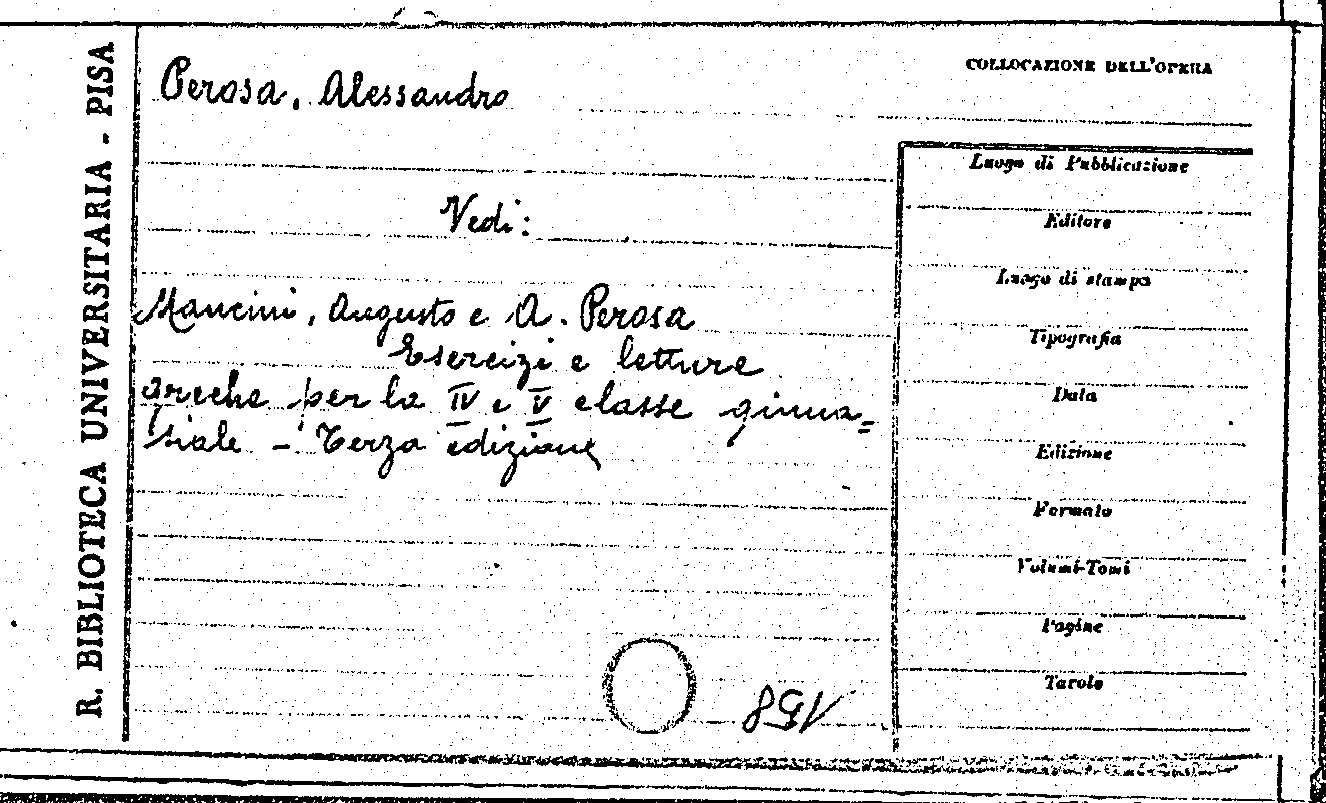 R. BIBLIOTECA UNIVERSITARIA - PISA
Perosa, Alessandro
Vedi:
Mancini, Augusto e A. Perosa
Esercizi e letture
greche per la IV e V classe ginna=
siale - Terza edizione
158
COLLOCAZIONE DELL'OPERA
Luogo di Pubblicazione
Editore
Luogo di stampa
Tipografia
Data
Edizione
Formato
Volumi-Tomi
Pagine
Tavole